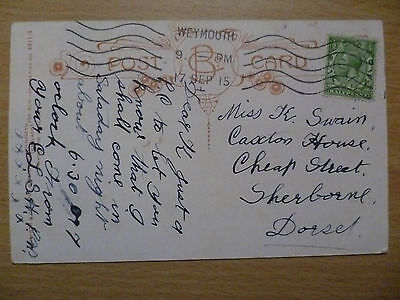 WEYMOUTH
9. PM
17 SEP 15
POST CARD
Dear K Just a
P.C to let you
know that I
shall come in
Sunday night
about 6.30 or 7
oclock From
Your
x x x x x
Miss K. Swain
Caxton House,
Cheap Street,
Sherborne,
Dorset.